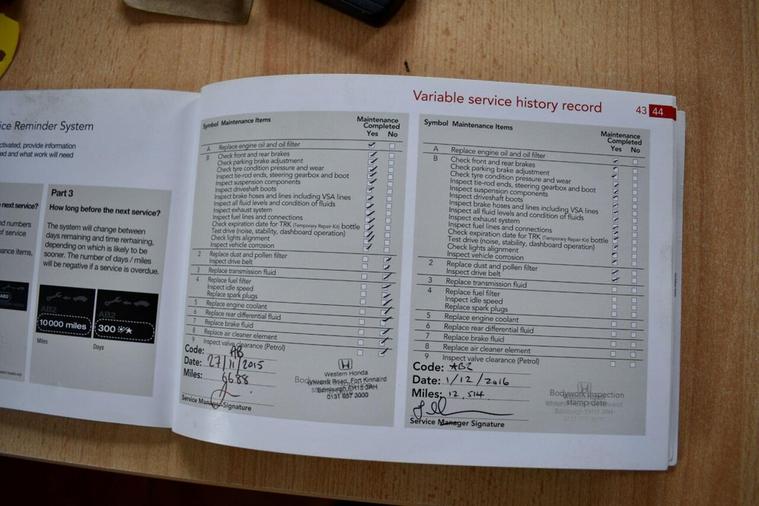 ice Reminder System
ctivated, provide information
ed and what work will need
next service?
nd numbers
of service
ance items,
Part 3
How long before the next service?
The system will change between
days remaining and time remaining,
depending on which is likely to be
sooner. The number of days / miles
will be negative if a service is overdue.
10000 miles
AB2
300
Miles
Days
Variable service history record
43 44
Symbol Maintenance Items
Maintenance
Completed
Yes No
A Replace engine oil and oil filter
B Check front and rear brakes
Check parking brake adjustment
Check tyre condition pressure and wear
Inspect tie-rod ends, steering gearbox and boot
Inspect suspension components
Inspect driveshaft boots
Inspect brake hoses and lines including VSA lines
Inspect all fluid levels and condition of fluids
Inspect exhaust system
Inspect fuel lines and connections
Check expiration date for TRK (Temporary Repair Kit) bottle
Test drive (noise, stability, dashboard operation)
Check lights alignment
Inspect vehicle corrosion
2 Replace dust and pollen filter
Inspect drive belt
3 Replace transmission fluid
4 Replace fuel filter
Inspect idle speed
Replace spark plugs
5 Replace engine coolant
6 Replace rear differential fluid
7 Replace brake fluid
8 Replace air cleaner element
9 Inspect valve clearance (Petrol)
Code: AB
Date: 27/11/2015
Miles: 6688
Service Manager Signature
Western Honda
0131 657 3000
Symbol Maintenance Items
Maintenance
Completed
Yes No
A Replace engine oil and oil filter
B Check front and rear brakes
Check parking brake adjustment
Check tyre condition pressure and wear
Inspect tie-rod ends, steering gearbox and boot
Inspect suspension components
Inspect driveshaft boots
Inspect brake hoses and lines including VSA lines
Inspect all fluid levels and condition of fluids
Inspect exhaust system
Inspect fuel lines and connections
Check expiration date for TRK (Temporary Repair Kit) bottle
Test drive (noise, stability, dashboard operation)
Check lights alignment
Inspect vehicle corrosion
2 Replace dust and pollen filter
Inspect drive belt
3 Replace transmission fluid
4 Replace fuel filter
Inspect idle speed
Replace spark plugs
5 Replace engine coolant
6 Replace rear differential fluid
7 Replace brake fluid
8 Replace air cleaner element
9 Inspect valve clearance (Petrol)
Code: AB2
Date: 1/12/2016
Miles: 12,514
Service Manager Signature
Bodywork inspection
stamp date